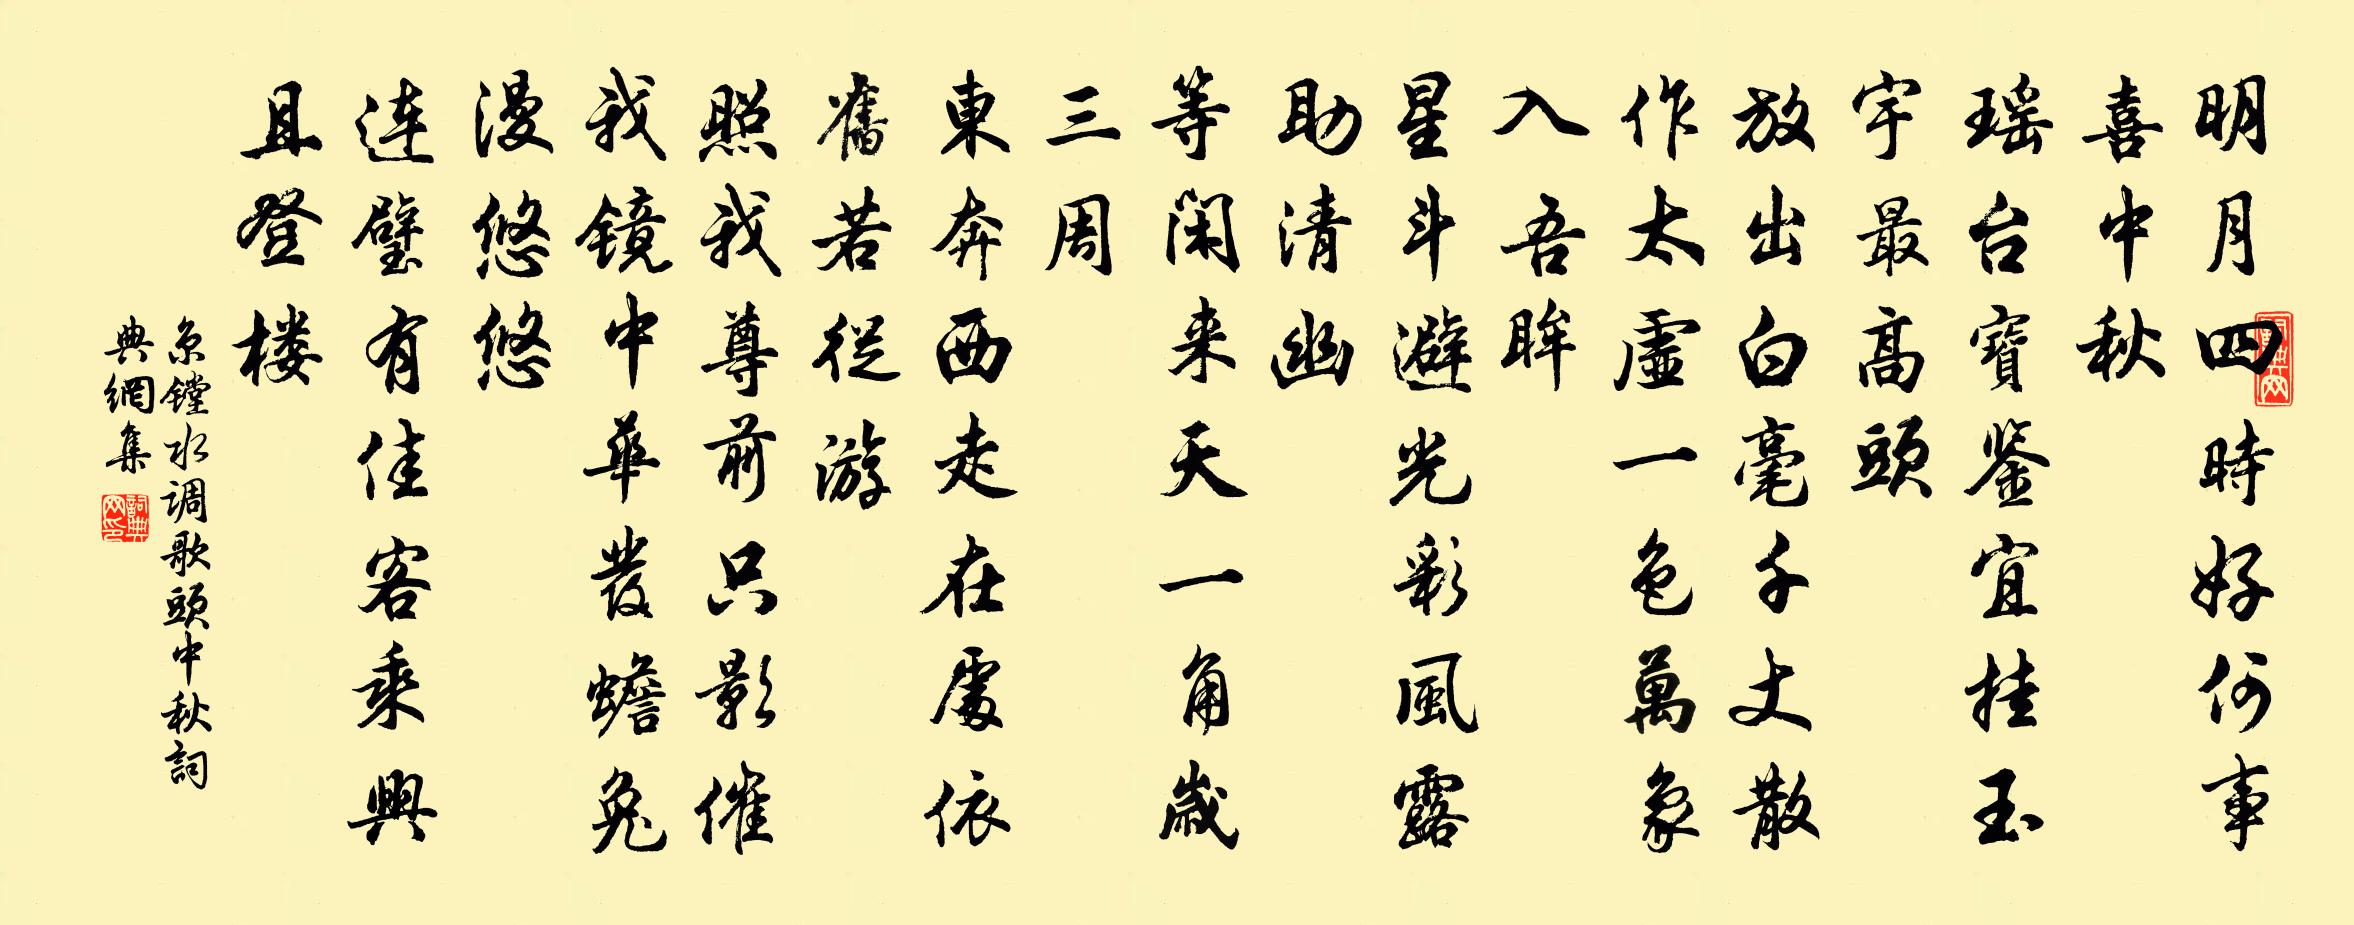 明月四時好何事
喜中秋
瑶台寶鉴宜挂玉
宇最高頭
放出白毫千丈散
作太虚一色萬象
入吾眸
星斗避光彩風露
助清幽
等闲来天一角歲
三周
東奔西走在處依
舊若從游
照我尊前只影催
我镜中華發蟾兔
漫悠悠
连璧有佳客乘興
且登楼
京镗水调歌頭中秋詞
典網集